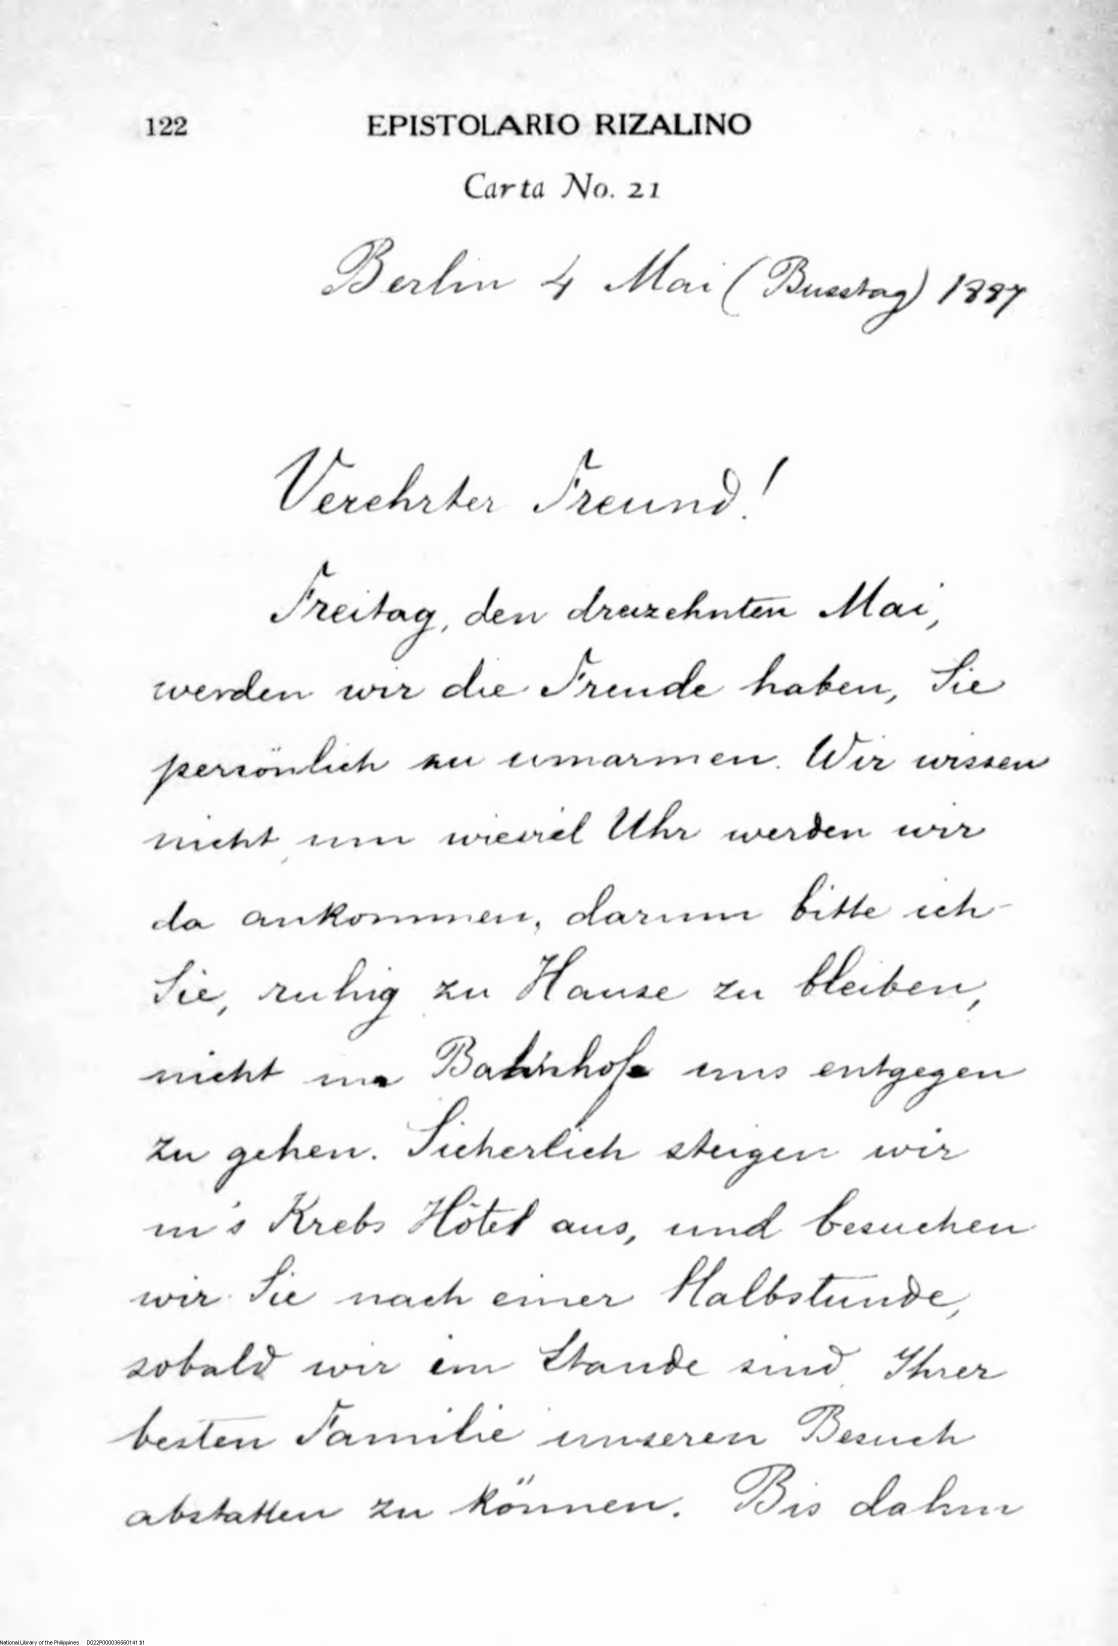 122 EPISTOLARIO RIZALINO
Carta No. 21
Berlin 4 Mai (Busstag) 1887
Verehrter Freund!
Freitag, den dreizehnten Mai,
werden wir die Freude haben, Sie
persönlich zu umarmen. Wir wissen
nicht um wieviel Uhr werden wir
da ankommen, darum bitte ich
Sie, ruhig zu Hause zu bleiben,
nicht im Bahnhofe uns entgegen
zu gehen. Sicherlich steigen wir
in's Krebs Hôtel aus, und besuchen
wir Sie nach einer Halbstunde,
sobald wir im Stande sind Ihrer
besten Familie unseren Besuch
abstatten zu können. Bis dahin
National Library of the Philippines